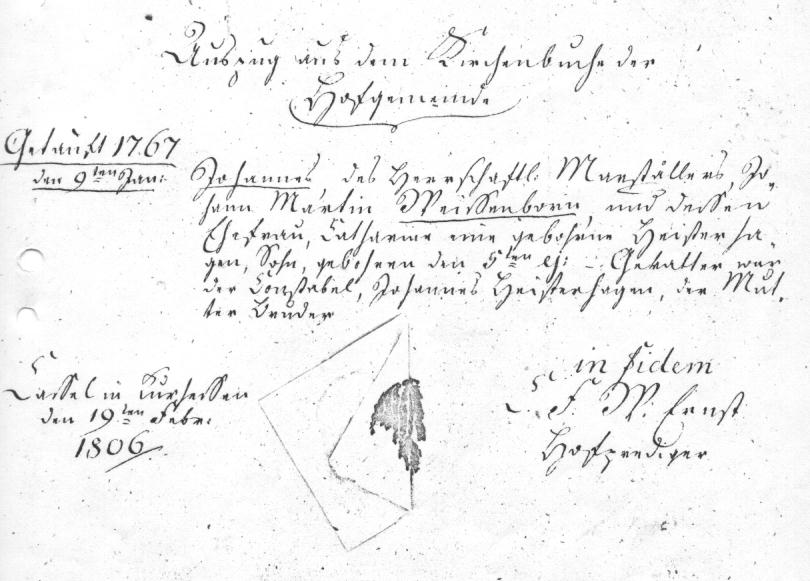 Auszug aus dem Kirchenbuche der
Hofgemeinde
Getauft 1767
den 9ten Jan:
Johannes des Herrschaftl: Marställers, Jo-
hann Martin Weissenborn und dessen
Ehefrau, Catharine eine gebohrne Heisterha-
gen, Sohn, gebohren den 5ten ej: – Gevatter war
der Constabel, Johannes Heisterhagen, der Mut-
ter Bruder
Cassel in Kurhessen
den 19ten Febr:
1806
in fidem
F. W. Ernst
Hofprediger